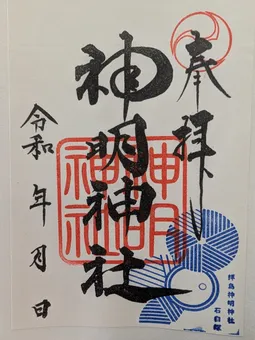 奉拝
神明神社
令和 年 月 日
神明
神社
拝島神明神社
石臼塚